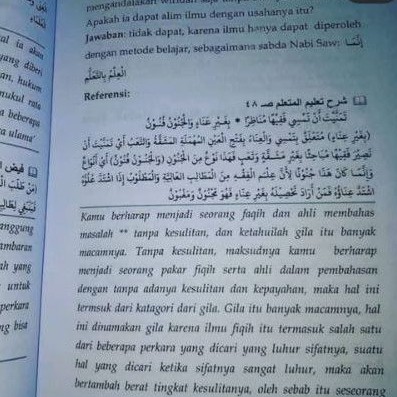 mengandalkan
Apakah ia dapat alim ilmu dengan usahanya itu?
Jawaban: tidak dapat, karena ilmu hanya dapat diperoleh
dengan metode belajar, sebagaimana sabda Nabi Saw: إنما
العلم بالتعلم
Referensi:
شرح تعليم المتعلم صـ ٤٨
تَمَنَّيْتَ أَنْ تُمْسِيَ فَقِيْهًا مُنَاظِرًا * بِغَيْرِ عَنَاءٍ وَالْجُنُوْنُ فُنُوْنُ
(بِغَيْرِ عَنَاءٍ) مُتَعَلِّقٌ بِتُمْسِي وَالْعَنَاءُ بِفَتْحِ الْعَيْنِ الْمُهْمَلَةِ الْمَشَقَّةُ وَالتَّعَبُ أَيْ تَمَنَّيْتَ أَنْ
تَصِيْرَ فَقِيْهًا مُبَاحِثًا بِغَيْرِ مَشَقَّةٍ وَتَعَبٍ فَهَذَا نَوْعٌ مِنَ الْجُنُوْنِ (وَالْجُنُوْنُ فُنُوْنُ) أَيْ أَنْوَاعٌ
وَإِنَّمَا كَانَ هَذَا جُنُوْنًا لِأَنَّ عِلْمَ الْفِقْهِ مِنَ الْمَطَالِبِ الْعَالِيَةِ وَالْمَطْلُوْبُ إِذَا اشْتَدَّ عُلُوُّهُ
اشْتَدَّ عَنَاؤُهُ فَمَنْ أَرَادَ تَحْصِيْلَهُ بِغَيْرِ عَنَاءٍ فَهُوَ مَجْنُوْنٌ وَمَغْبُوْنٌ
Kamu berharap menjadi seorang faqih dan ahli membahas
masalah ** tanpa kesulitan, dan ketahuilah gila itu banyak
macamnya. Tanpa kesulitan, maksudnya kamu berharap
menjadi seorang pakar fiqih serta ahli dalam pembahasan
dengan tanpa adanya kesulitan dan kepayahan, maka hal ini
termsuk dari katagori dari gila. Gila itu banyak macamnya, hal
ini dinamakan gila karena ilmu fiqih itu termasuk salah satu
dari beberapa perkara yang dicari yang luhur sifatnya, suatu
hal yang dicari ketika sifatnya sangat luhur, maka akan
bertambah berat tingkat kesulitanya, oleh sebab itu seseorang